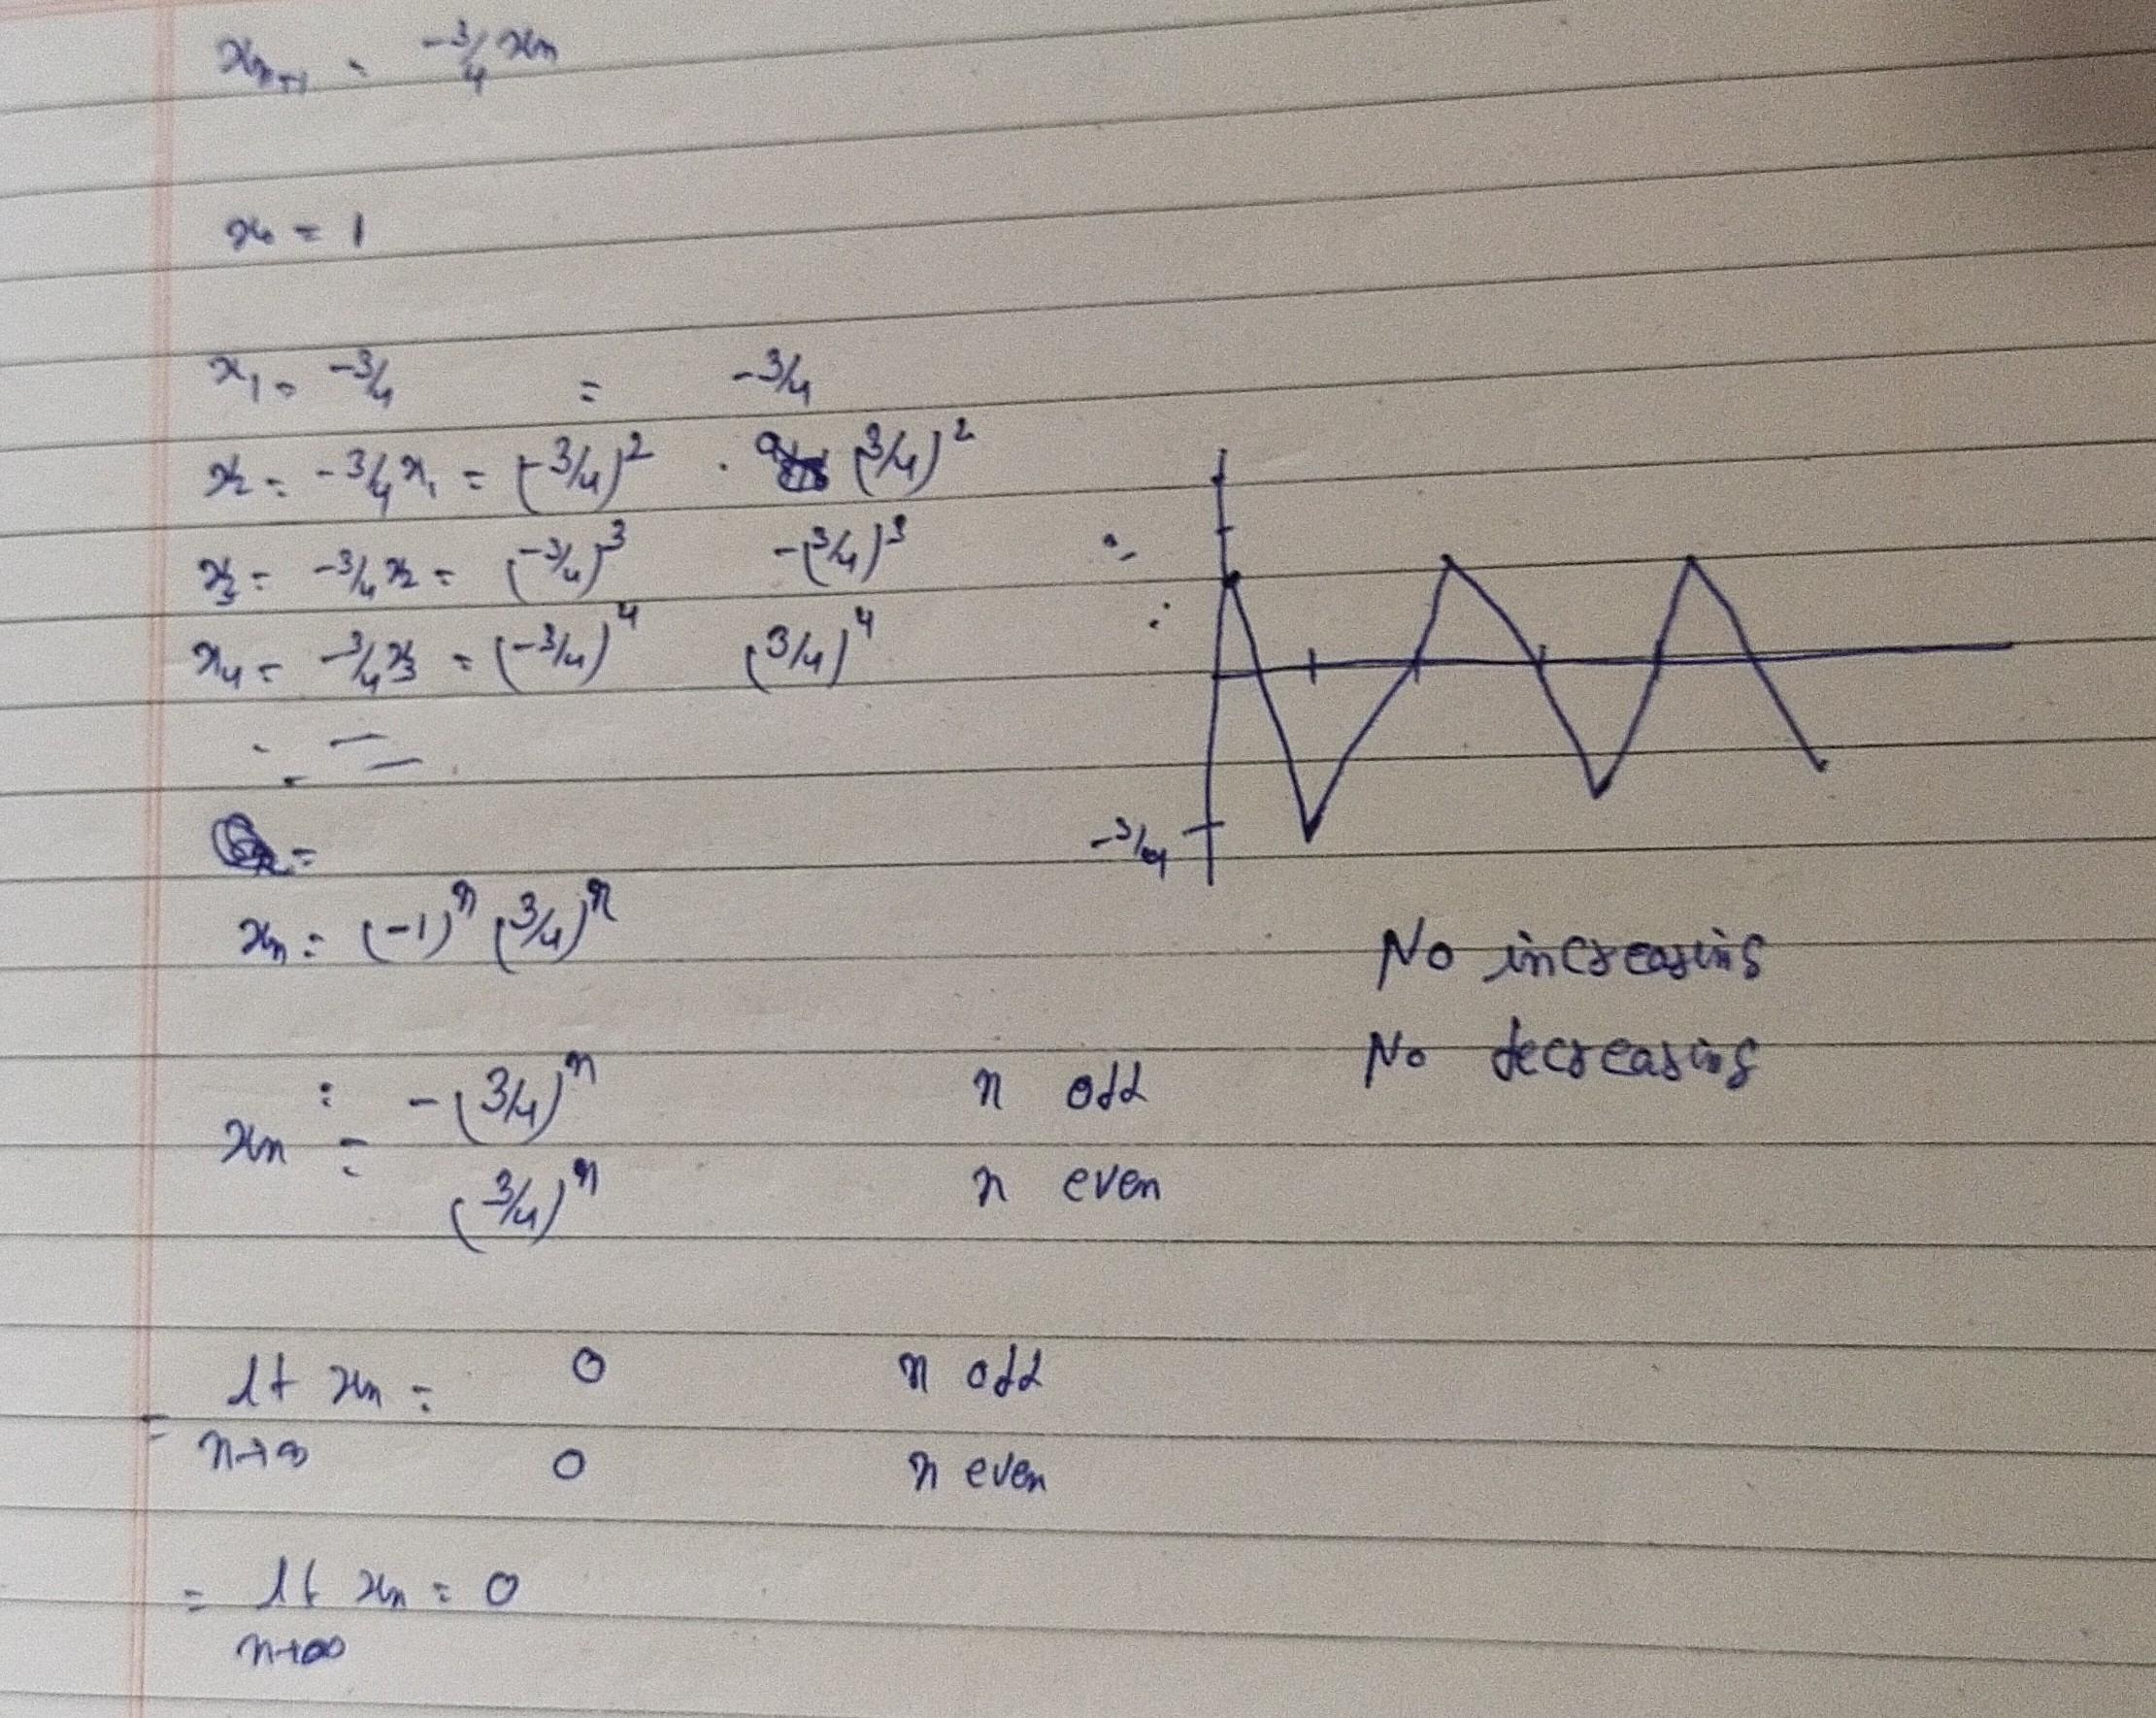 xₙ₊₁ = -3/4 xₙ
x₀ = 1
x₁ = -3/4 = -3/4
x₂ = -3/4 x₁ = (-3/4)² (3/4)²
x₃ = -3/4 x₂ = (-3/4)³ -(3/4)³
x₄ = -3/4 x₃ = (-3/4)⁴ (3/4)⁴
-3/4
xₙ = (-1)ⁿ (3/4)ⁿ
No increasing
No decreasing
xₙ = -(3/4)ⁿ n odd
(3/4)ⁿ n even
lt xₙ = 0 n odd
n→∞ 0 n even
= lt xₙ = 0
n→∞